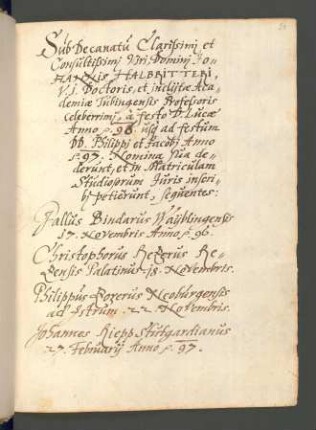 Sub Decanatu Clarissimi et
Consultissimi Viri Domini JO-
HANNIS HALBRITTERI,
V.J. Doctoris, et inclijtæ Aca-
demiæ Tubingensis Professoris
celeberrimj, à festo D. Lucæ
Anno 96. usq ad festum
DD. Philippi et Jacobj Anno
97. Nomina sua de-
derunt, et in Matriculam
Studiosorum Juris inscri-
bj petierunt, sequentes:
Gallus Bindarus Waÿblingensis
17. Novembris Anno, 96.
Christophorus
Palatinus 18. Novembris.
Philippus Neoburgensis
ad Istrum. 22. Novembris.
Johannes Riepp Stutgardianus
27. Februarij Anno 97.